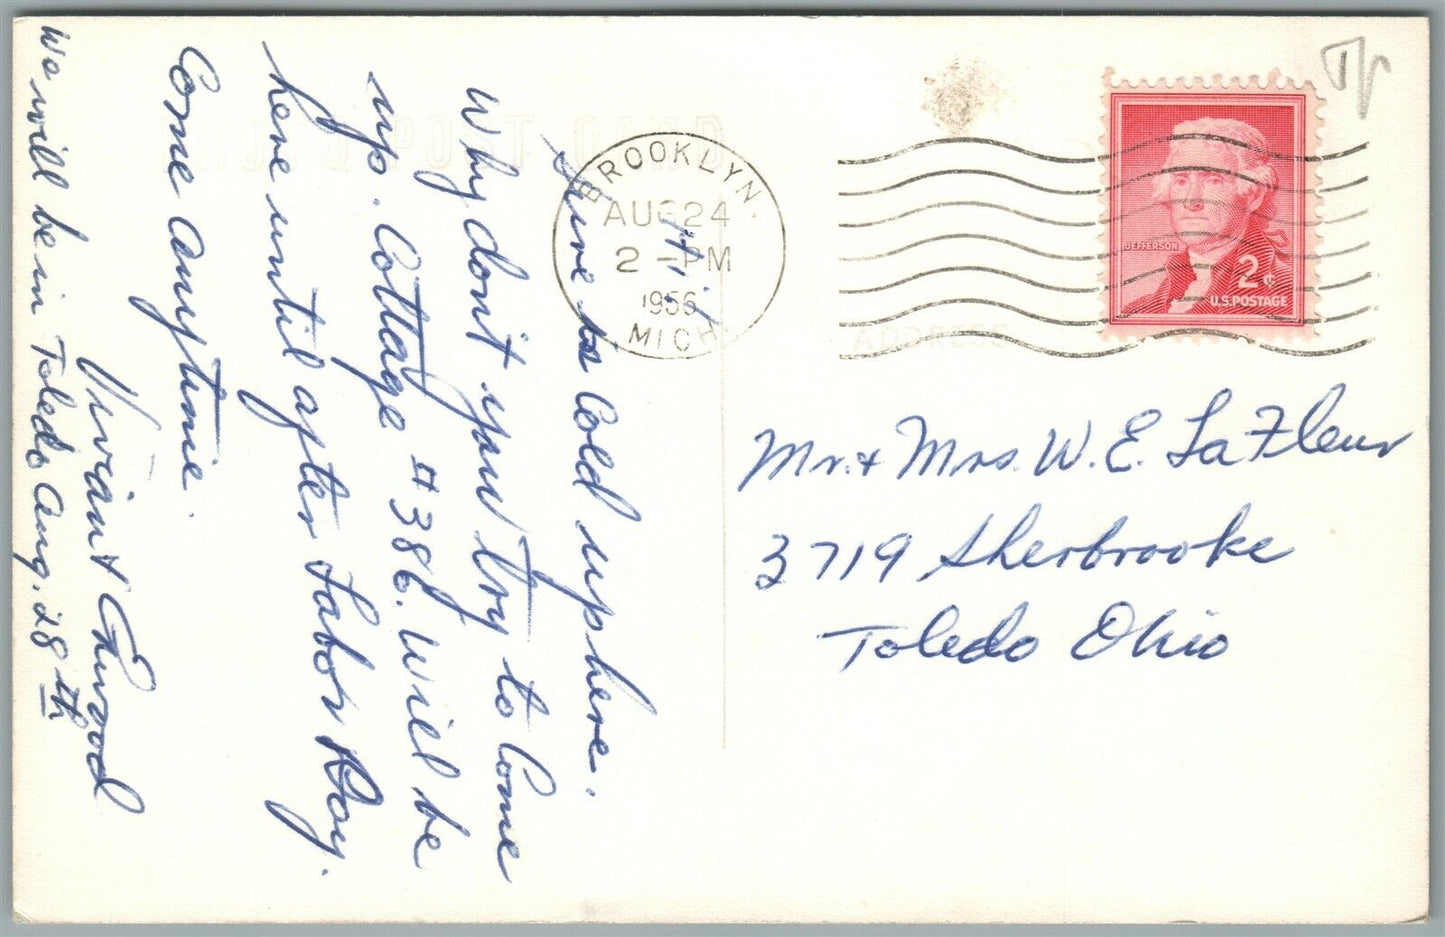 Hi,
Sure is Cold up here.
Why don't you try to Come
up. Cottage #386. Will be
here until after Labor Day.
Come anytime.
Vivian & Elwood
We will be in Toledo Aug. 28th
BROOKLYN.
AUG 24
2 - PM
1956
MICH.
JEFFERSON
2¢
U.S. POSTAGE
Mr. & Mrs. W. E. LaFleur
3719 Sherbrooke
Toledo Ohio
POST CARD